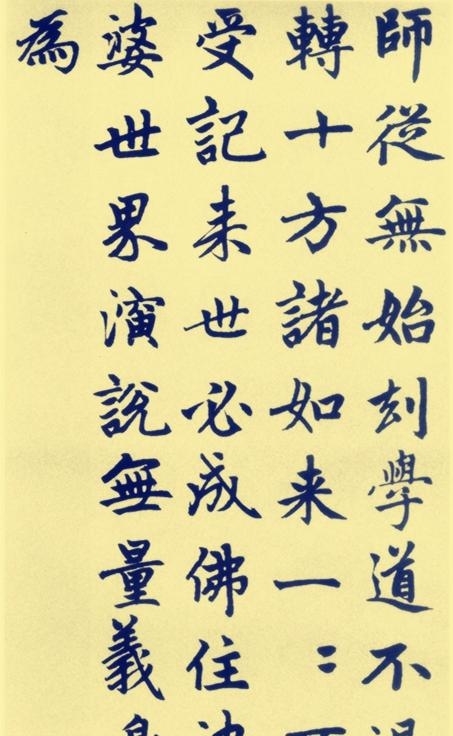 師從無始刦學道不
轉十方諸如来一：
受記来世必成佛住
婆世界演說無量義
為